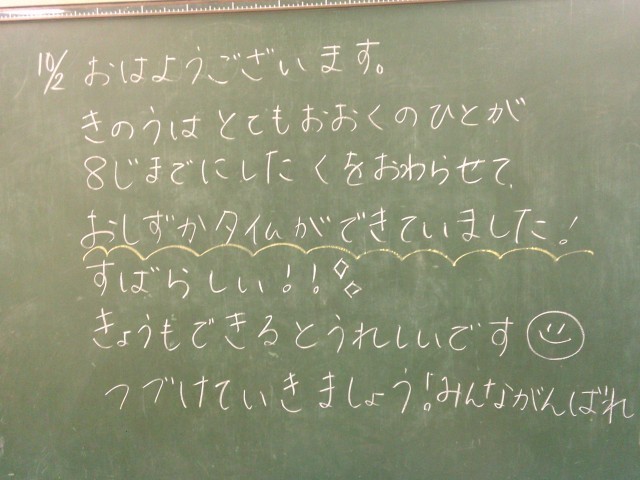 10/2 おはようございます。
きのうはとてもおおくのひとが
8じまでにしたくをおわらせて、
おしずかタイムができていました!
すばらしい!!
きょうもできるとうれしいです
つづけていきましょう!みんながんばれ